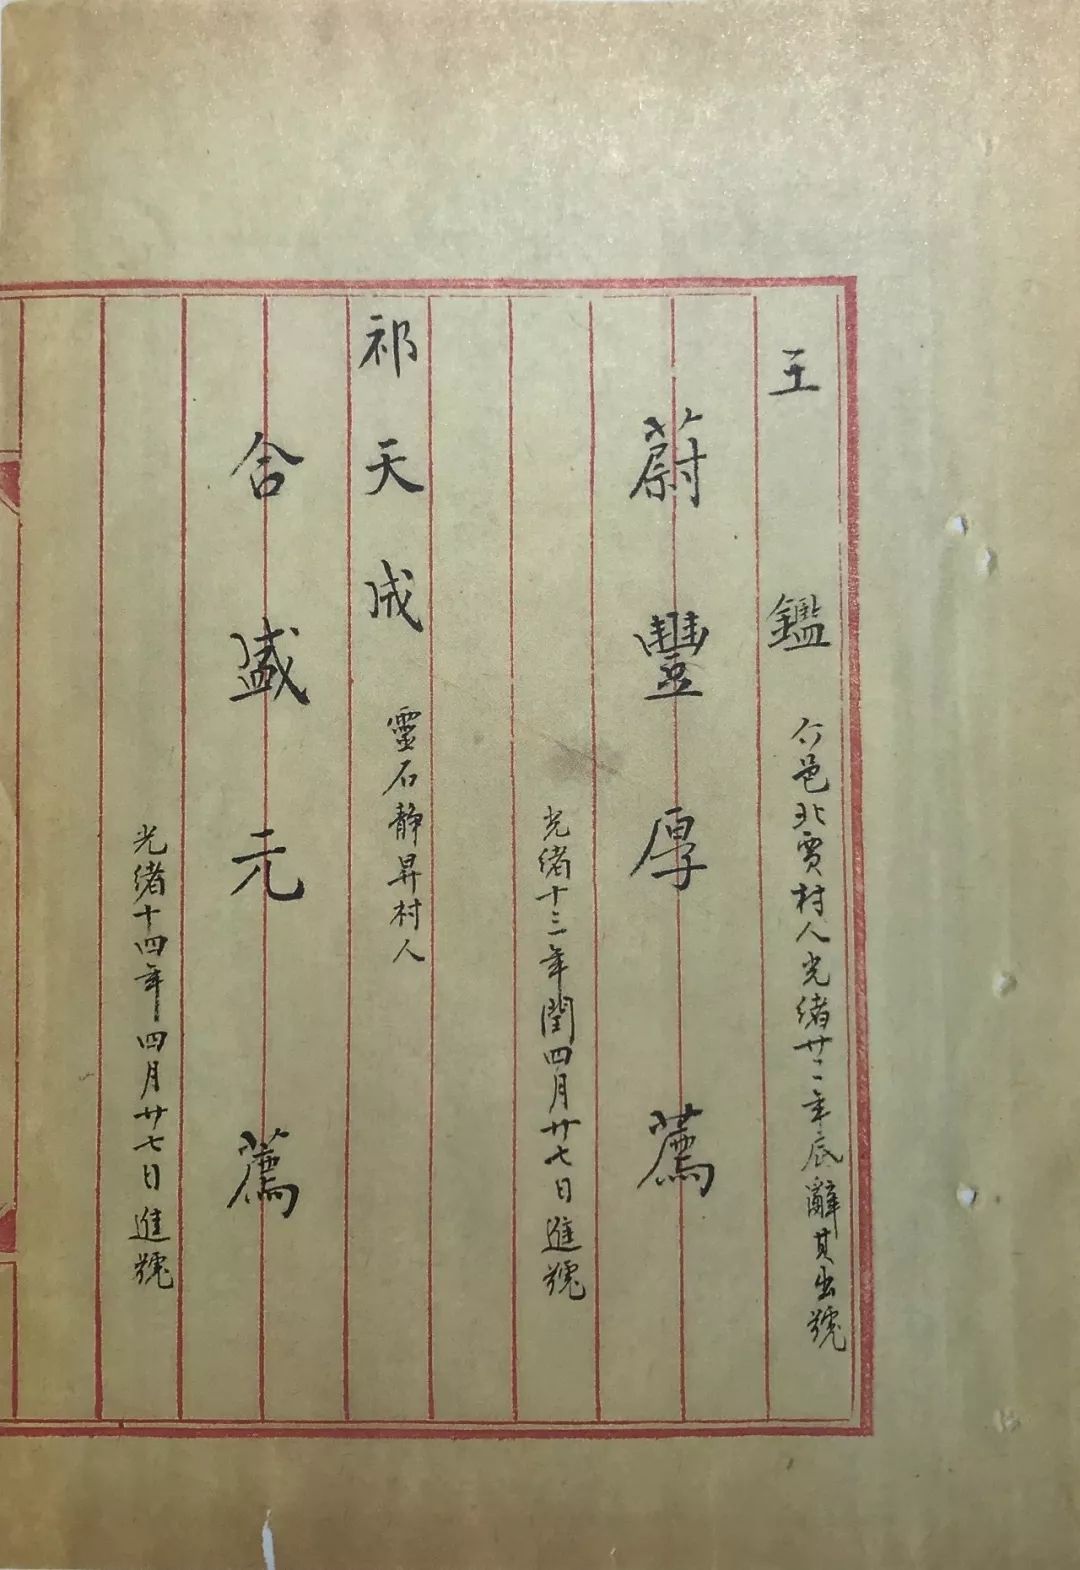 王鑑 介邑北賈村人光緒廿二年底辭其出號
蔚豐厚薦
光緒十三年閏四月廿七日進號
祁天成 靈石靜昇村人
合盛元薦
光緒十四年四月廿七日進號